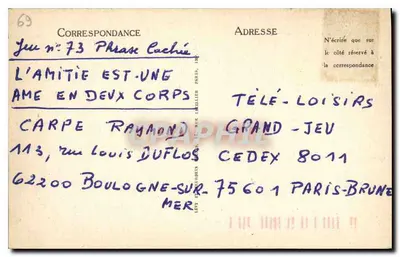 69
CORRESPONDANCE
Jeu n° 73 Phrase Cachée
L'AMITIE EST-UNE
AME EN DEUX CORPS
CARPE RAYMOND
113, rue Louis DUFLOS
62200 BOULOGNE-SUR-
MER
ADRESSE
N'écrire que sur
le côté réservé à
la correspondance
TÉLÉ-LOISIRS
GRAND-JEU
CEDEX 8011
75601 PARIS-BRUNE